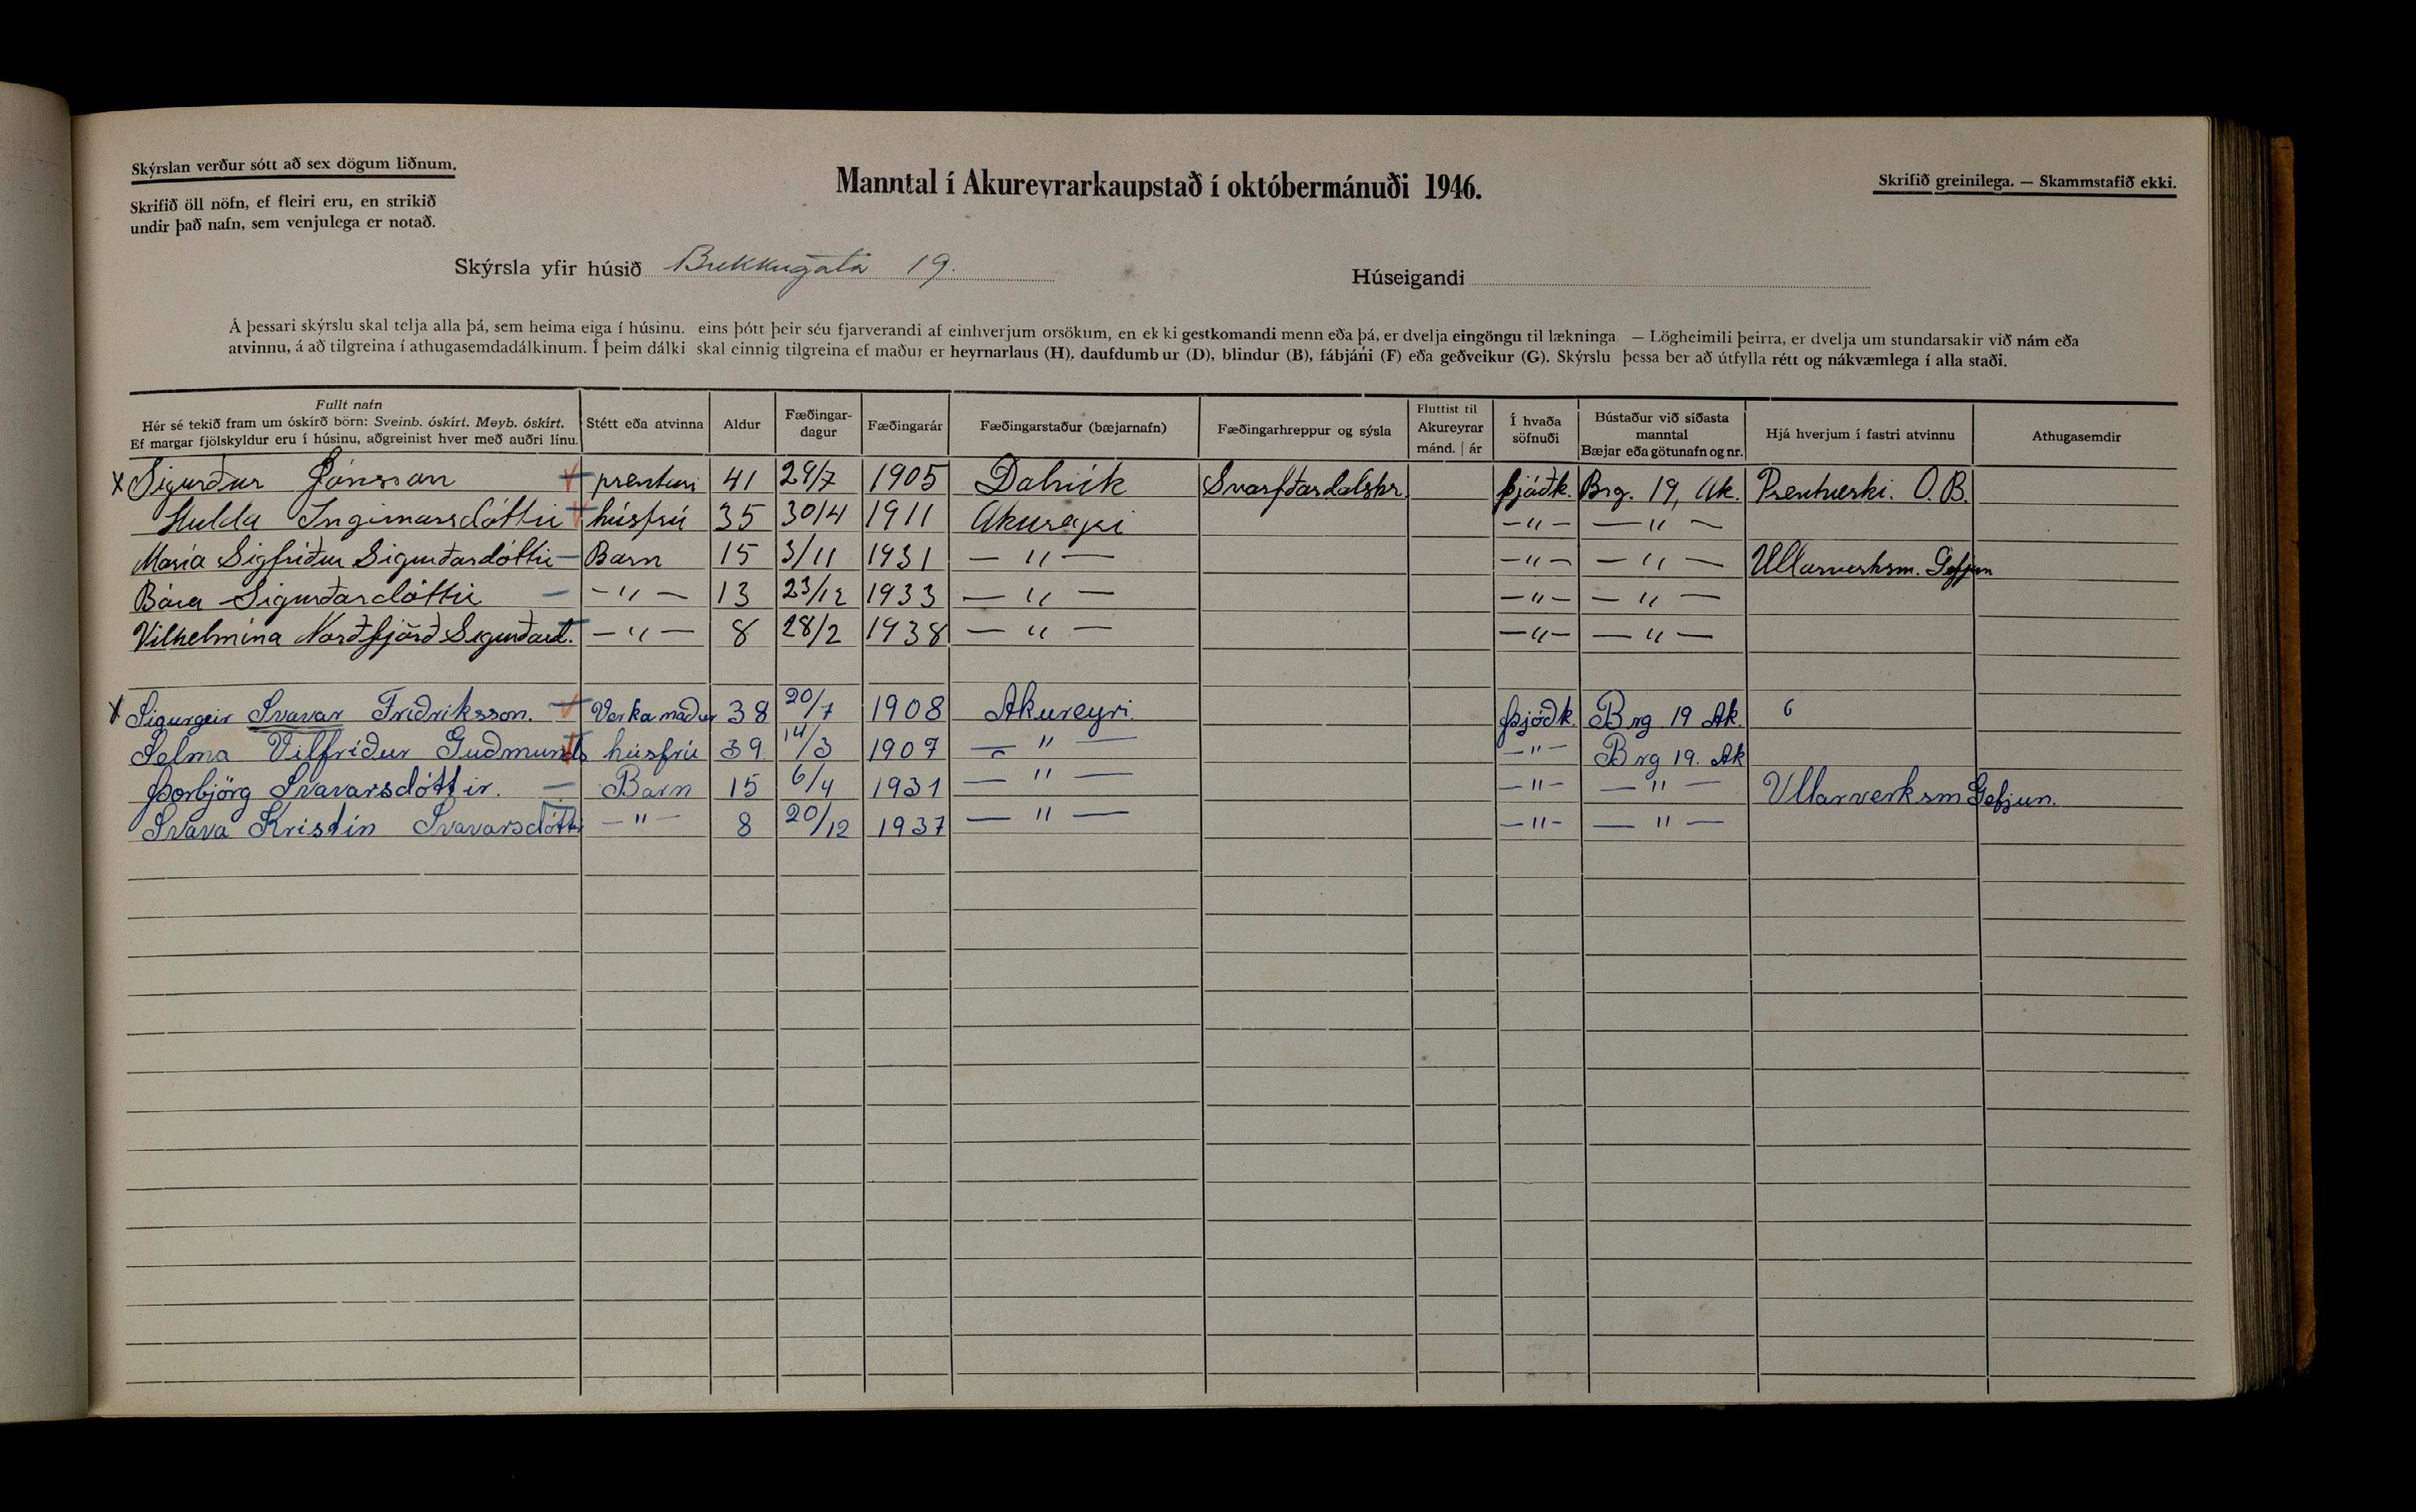 Skýrslan verður sótt að sex dögum liðnum.
Skrifið öll nöfn, ef fleiri eru, en strikið
undir það nafn, sem venjulega er notað.
Manntal í Akureyrarkaupstað í októbermánuði 1946.
Skrifið greinilega. — Skammstafið ekki.
Skýrsla yfir húsið Brekkugata 19.
Húseigandi
Á þessari skýrslu skal telja alla þá, sem heima eiga í húsinu, eins þótt þeir séu fjarverandi af einhverjum orsökum, en ekki gestkomandi menn eða þá, er dvelja eingöngu til lækninga. — Lögheimili þeirra, er dvelja um stundarsakir við nám eða
atvinnu, á að tilgreina í athugasemdadálkinum. Í þeim dálki skal einnig tilgreina ef maður er heyrnarlaus (H), daufdumbur (D), blindur (B), fábjáni (F) eða geðveikur (G). Skýrslu þessa ber að útfylla rétt og nákvæmlega í alla staði.
Fullt nafn
Hér sé tekið fram um óskírð börn: Sveinb. óskírt. Meyb. óskírt.
Ef margar fjölskyldur eru í húsinu, aðgreinist hver með auðri línu.
Stétt eða atvinna
Aldur
Fæðingar-
dagur
Fæðingarár
Fæðingarstaður (bæjarnafn)
Fæðingarhreppur og sýsla
Fluttist til
Akureyrar
mánd. | ár
Í hvaða
söfnuði
Bústaður við síðasta
manntal
Bæjar eða götunafn og nr.
Hjá hverjum í fastri atvinnu
Athugasemdir
x Sigurður Jónsson prentari 41 29/7 1905 Dalvík Svarfðardalshr. þjóðk. Brg. 19, Ak. Prentverki. O. B.
Hulda Ingimarsdóttir húsfrú 35 30/4 1911 Akureyri — " — — " —
María Sigfríður Sigurðardóttir — Barn 15 3/11 1931 — " — — " — — " — Ullarverksm. Gefjun
Bára Sigurðardóttir — — " — 13 23/12 1933 — " — — " — — " —
Vilhelmína Norðfjörð Sigurðard. — " — 8 28/2 1938 — " — — " — — " —
x Sigurgeir Svavar Friðriksson. Verkamaður 38 20/7 1908 Akureyri. Þjóðk. Brg 19 Ak. 6
Selma Vilfríður Guðmunds húsfrú 39 14/3 1907 — " — — " — Brg 19. Ak
Þorbjörg Svavarsdóttir. — Barn 15 6/4 1931 — " — — " — — " — Ullarverksm Gefjun.
Svava Kristín Svavarsdótti — " — 8 20/12 1937 — " — — " — — " —